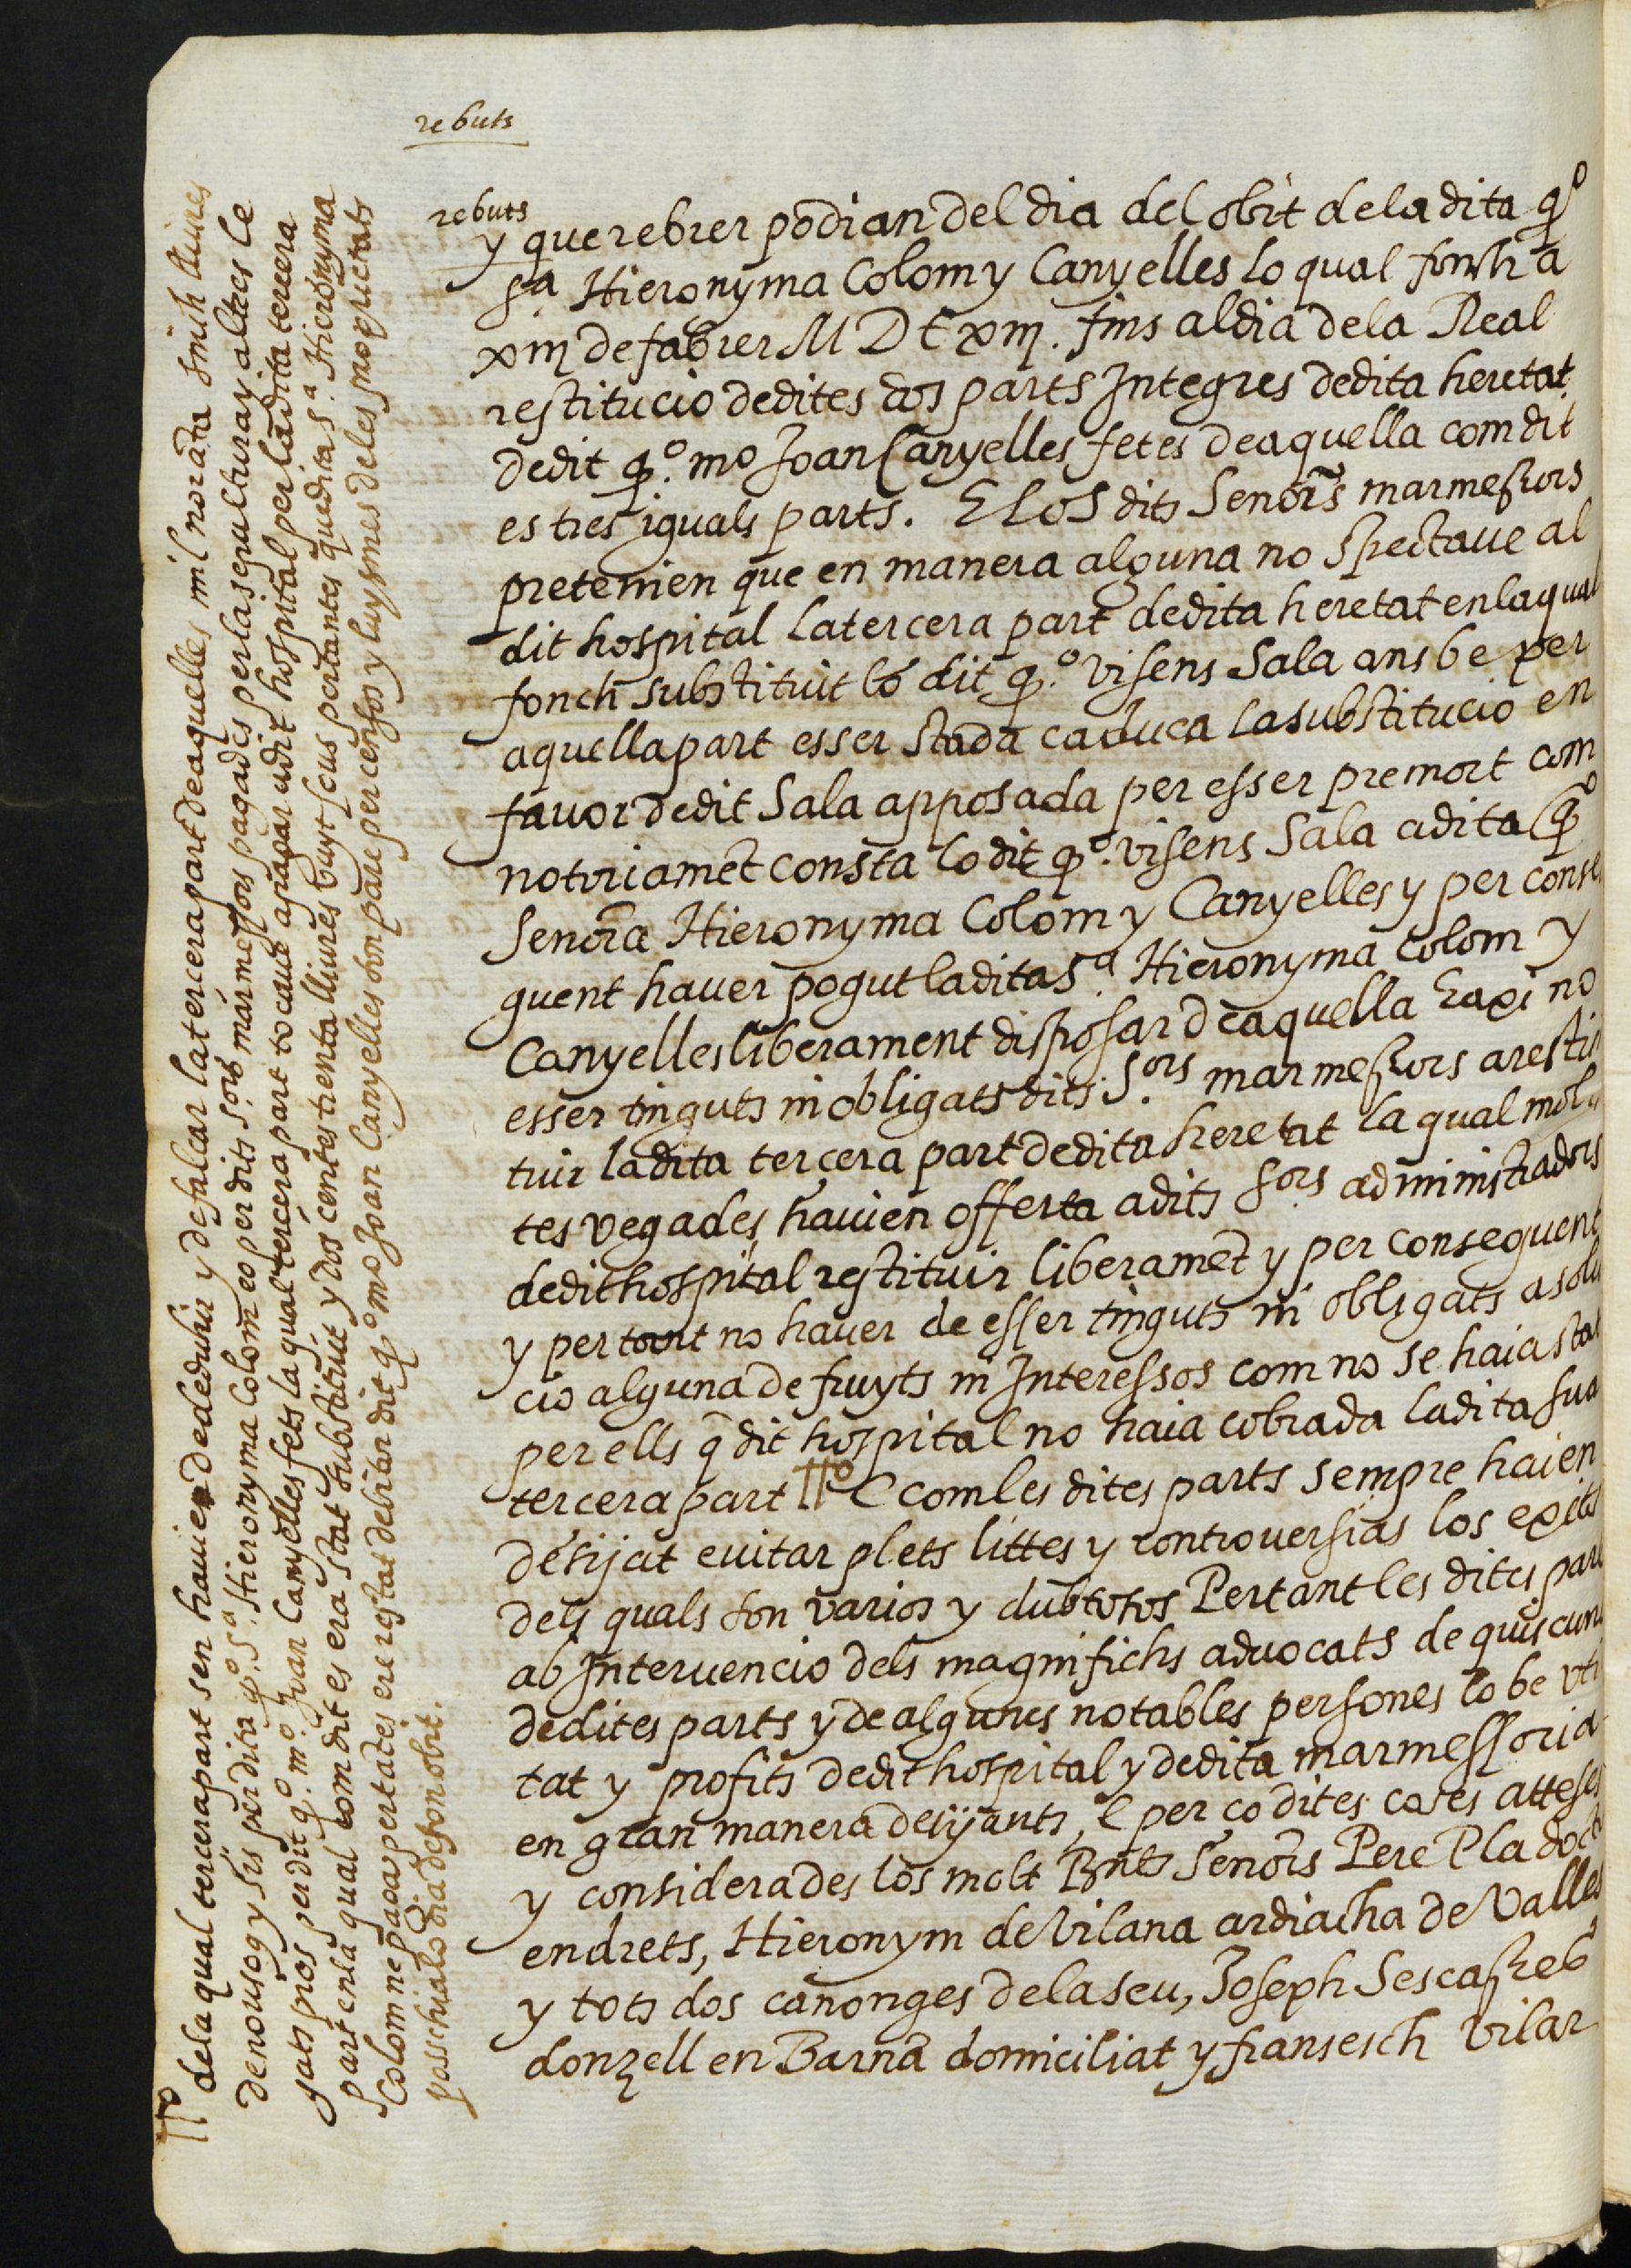 rebuts
rebuts
y que rebrer podian del dia del obit de la dita qº
sª Hieronyma Colom y Canyelles lo qual fonch a
xiiij de fabrer M D C xiiij. fins al dia dela Real
restitucio dedites dos parts Integres dedita heretat
dedit qº. mº Joan Canyelles fetes de aquella com dit
es tres iguals parts. E Los dits Senors marmessors
pretenien que en manera alguna no spectaue al
dit hospital la tercera part dedita heretat en la qual
fonch substituit lo dit qº. Visens Sala ans be per
aquella part esser stada caduca la substitucio en
fauor dedit Sala apposada per esser premort com
notoriamet consta lo dit qº. Visens Sala a dita qº
Senora Hieronyma Colom y Canyelles y per conse
guent hauer pogut la dita Sª. Hieronyma Colom y
Canyelles liberament disposar de aquella E axi no
esser tinguts ni obligats dits S.ors marmessors a resti
tuir la dita tercera part dedita heretat la qual mol
tes vegades hauien offerta a dits Sors administradors
dedit hospital restituir liberamet y per consequent
y per tant no hauer de esser tinguts ni obligats a solu
cio alguna de fruyts ni Interessos com no se haia stat
per ells q dit hospital no haia cobrada la dita sua
tercera part E com les dites parts sempre haien
desijat euitar plets littes y controuersias los exits
dels quals son varios y dubtosos Per tant les dites parts
ab Interuencio dels magnifichs aduocats de quiscuna
dedites parts y de algunes notables persones lo be vti
tat y profits dedit hospital y dedita marmessoria
en gran manera desijants, E per ço dites coses atteses
y considerades los molt Rnts Senors Pere Pla doct
en drets, Hieronym de Vilana ardiacha de Valles
y tots dos canonges dela seu, Joseph Sescasses
donzell en Barna domiciliat y fransesch Vilar
dela qual tercera part sen hauien de deduhir y defalcar la tercera part de aquelles mil noranta sinch lliures
denou sog y sis per dita qº. Sª. Hieronyma Colom eo per dits S.ors marmessors pagades per la sepultura y altres le
gats pios per dit qº. mº. Juan Canyelles fets la qual tercera part tocaua a pagar a dit hospital per la dita tercera
part en la qual com dit es era stat substituit y dos centes trenta lliures buyt sous pertants que dita sª. Hieronyma
Colom ne pagaua per tantes en restat debitor dit qº mº Joan Canyelles son pare per censos y lluysmes deles proprietats